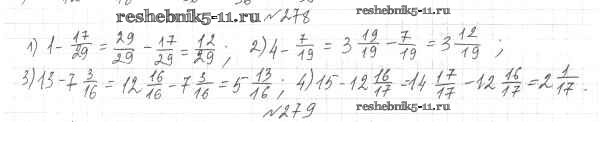 reshebnik5-11.ru №278 reshebnik5-11.ru
1) 1 - 17/29 = 29/29 - 17/29 = 12/29 ; 2) 4 - 7/19 = 3 19/19 - 7/19 = 3 12/19 ;
3) 13 - 7 3/16 = 12 16/16 - 7 3/16 = 5 13/16 ; 4) 15 - 12 16/17 = 14 17/17 - 12 16/17 = 2 1/17 .
№279 reshebnik5-11.ru